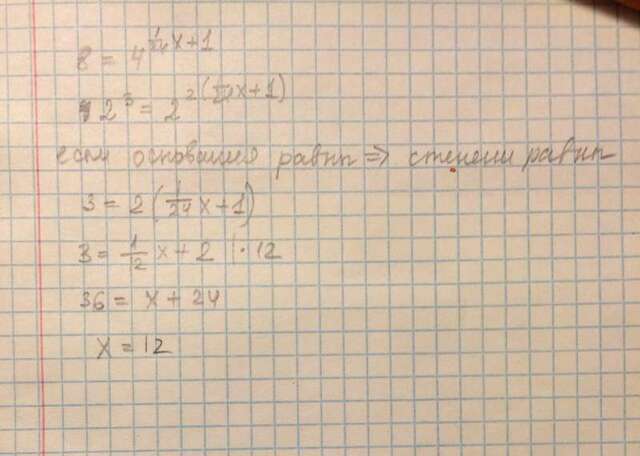 8 = 4^(1/24 x+1)
2^3 = 2^2(1/24 x+1)
если основания равны => степени равны
3 = 2(1/24 x+1)
3 = 1/12 x + 2 |· 12
36 = x + 24
x = 12